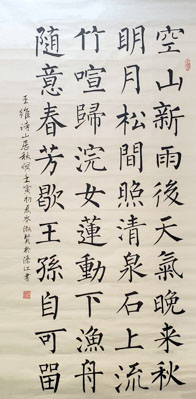 空山新雨後天氣晚来秋
明月松間照清泉石上流
竹喧歸浣女蓮動下漁舟
隨意春芳歇王孫自可留
王維詩山居秋暝壬寅初夏